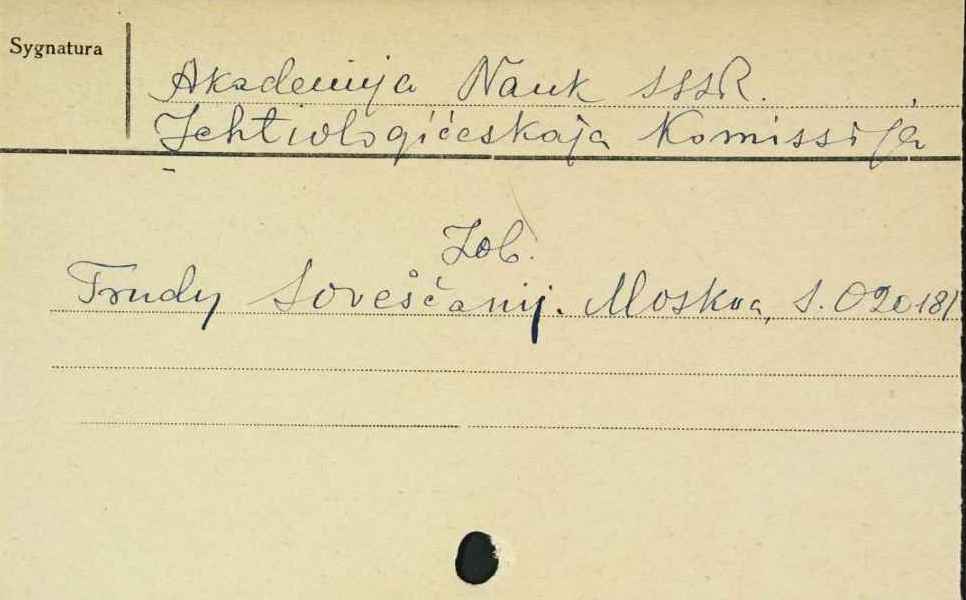 Sygnatura
Akademija Nauk SSSR.
Ichtiologičeskaja Komissija
Zob.
Trudy Soveščanij. Moskva, S. 020181